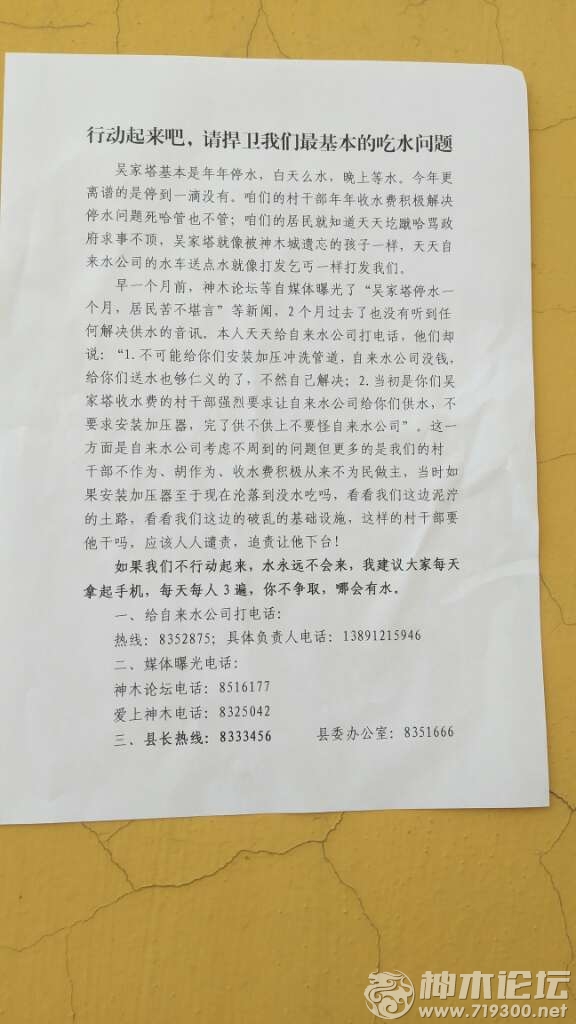 行动起来吧，请捍卫我们最基本的吃水问题
吴家塔基本是年年停水，白天么水，晚上等水。今年更
离谱的是停到一滴没有。咱们的村干部年年收水费积极解决
停水问题死哈管也不管；咱们的居民就知道天天圪蹴哈骂政
府求事不顶，吴家塔就像被神木城遗忘的孩子一样，天天自
来水公司的水车送点水就像打发乞丐一样打发我们。
早一个月前，神木论坛等自媒体曝光了“吴家塔停水一
个月，居民苦不堪言”等新闻，2 个月过去了也没有听到任
何解决供水的音讯。本人天天给自来水公司打电话，他们却
说：“1.不可能给你们安装加压冲洗管道，自来水公司没钱，
给你们送水也够仁义的了，不然自己解决；2.当初是你们吴
家塔收水费的村干部强烈要求让自来水公司给你们供水，不
要求安装加压器，完了供不供上不要怪自来水公司”。这一
方面是自来水公司考虑不周到的问题但更多的是我们的村
干部不作为、胡作为、收水费积极从来不为民做主，当时如
果安装加压器至于现在沦落到没水吃吗，看看我们这边泥泞
的土路，看看我们这边的破乱的基础设施，这样的村干部要
他干吗，应该人人谴责，追责让他下台！
如果我们不行动起来，水永远不会来，我建议大家每天
拿起手机，每天每人 3 遍，你不争取，哪会有水。
一、给自来水公司打电话：
热线：8352875；具体负责人电话：13891215946
二、媒体曝光电话：
神木论坛电话：8516177
爱上神木电话：8325042
三、县长热线：8333456 县委办公室：8351666
神木论坛
www.719300.net